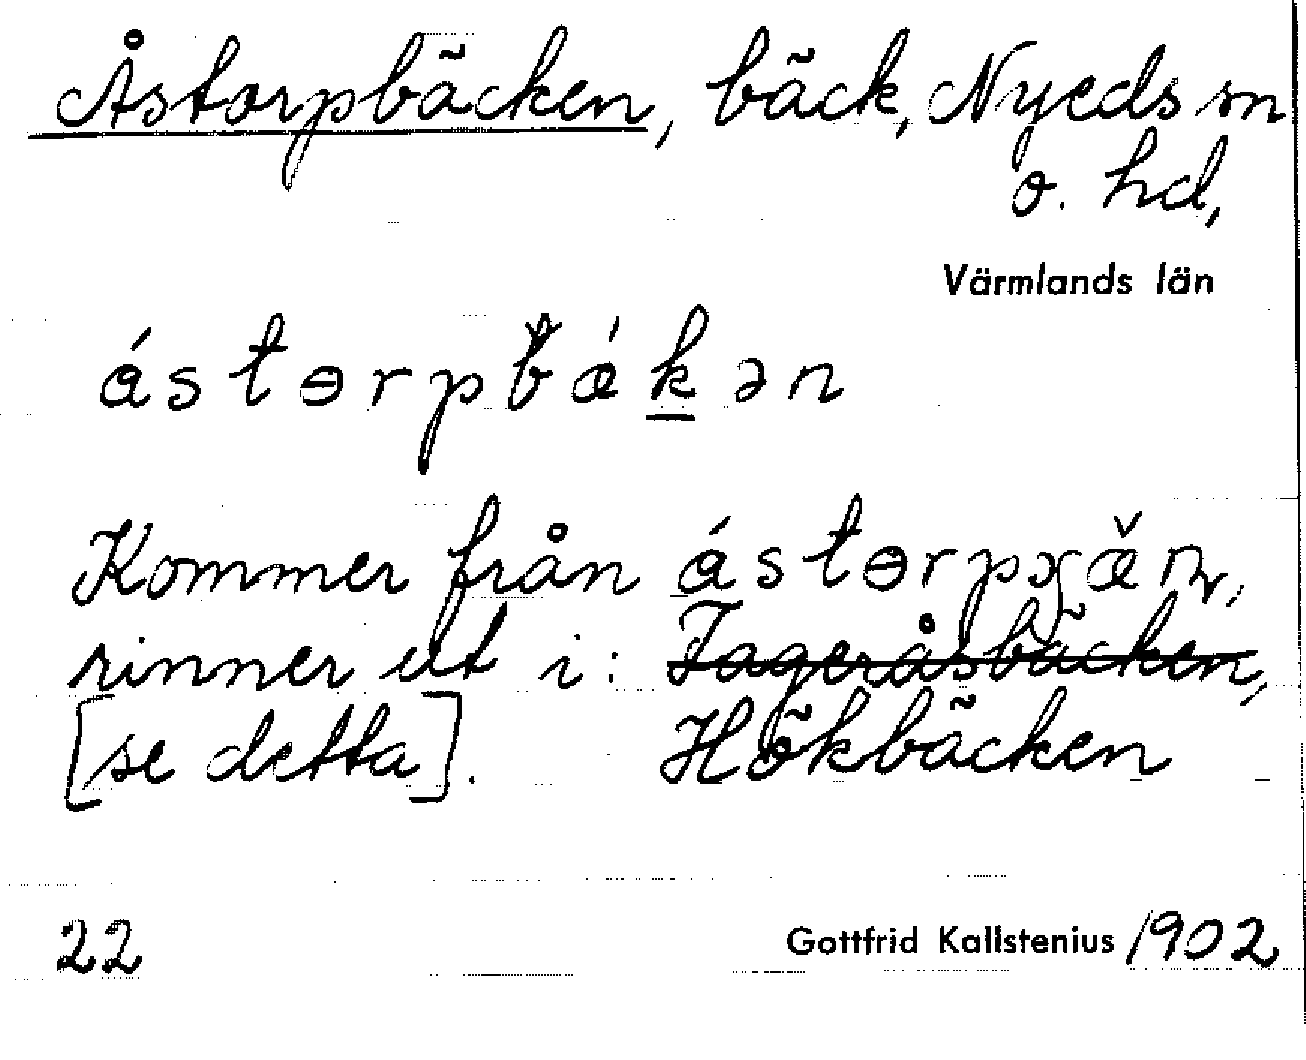 Åstorpbäcken, bäck, Nyeds sn
o. hd,
Värmlands län
ástɵrpbǽkən
Kommer från
rinner ut i: Jageråsbäcken,
[se detta]. Hökbäcken
22
Gottfrid Kallstenius 1902